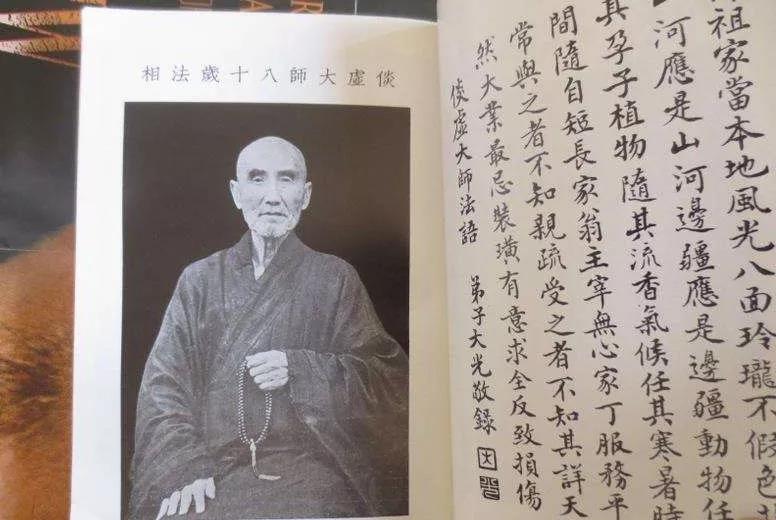 倓虛大師八十歲法相
祖家當本地風光八面玲瓏不假色
河應是山河邊疆應是邊疆動物任
其孕子植物隨其流香氣候任其寒暑時
間隨自短長家翁主宰無心家丁服務平
常與之者不知親疏受之者不知其詳天
然大業最忌裝璜有意求全反致損傷
倓虛大師法語 弟子大光敬錄